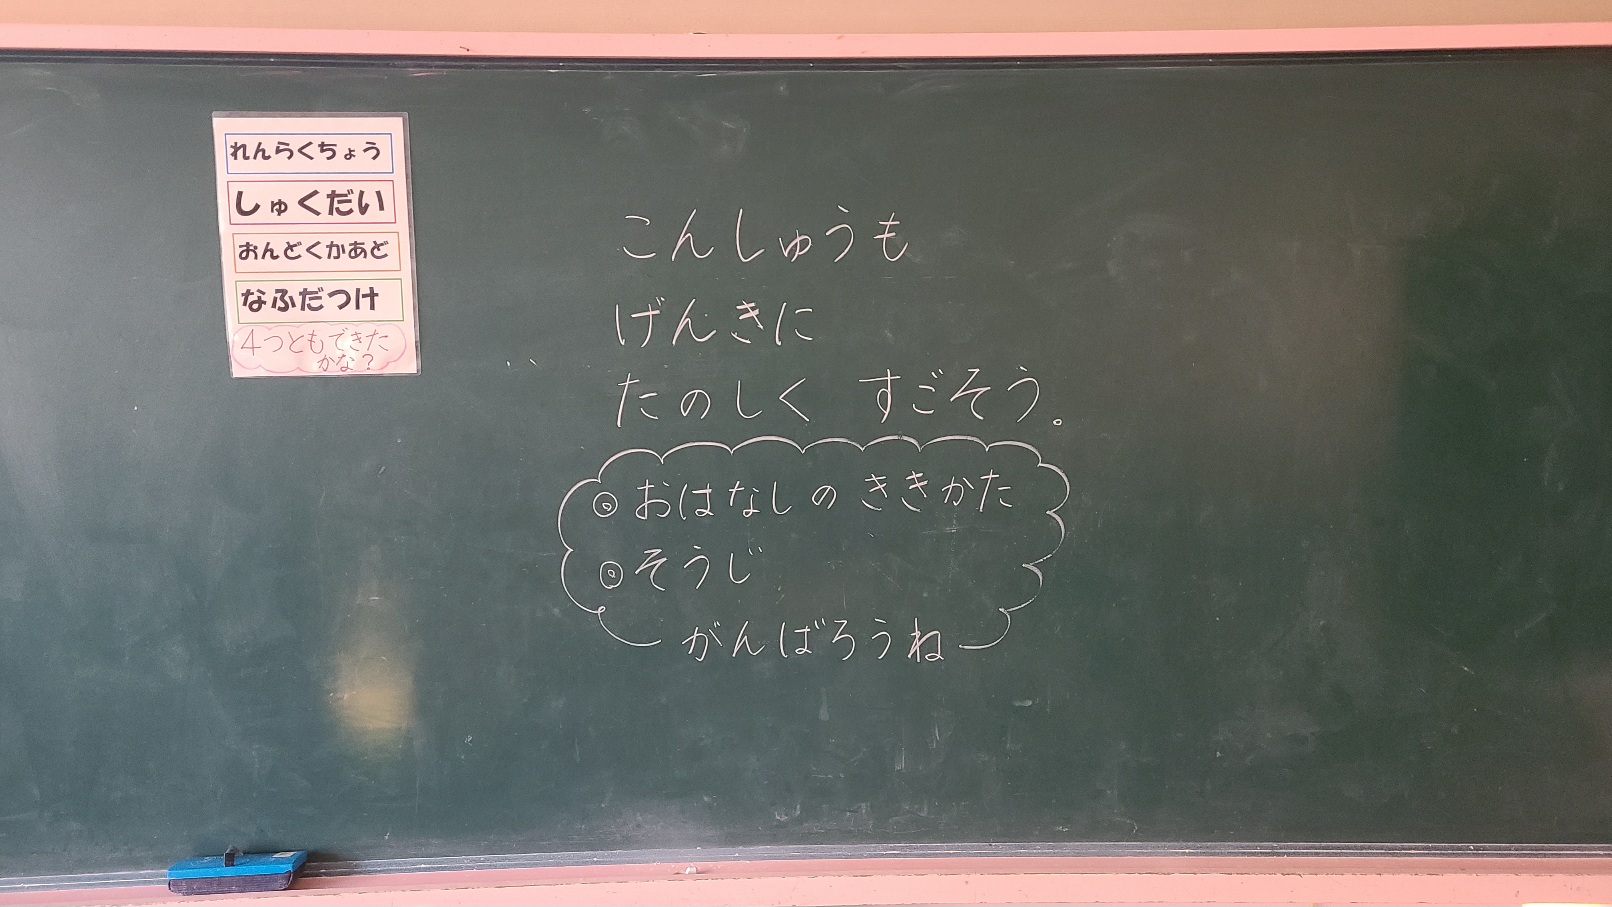 れんらくちょう
しゅくだい
おんどくかあど
なふだつけ
4つともできた
かな？
こんしゅうも
げんきに
たのしく すごそう。
◎おはなしの ききかた
◎そうじ
がんばろうね